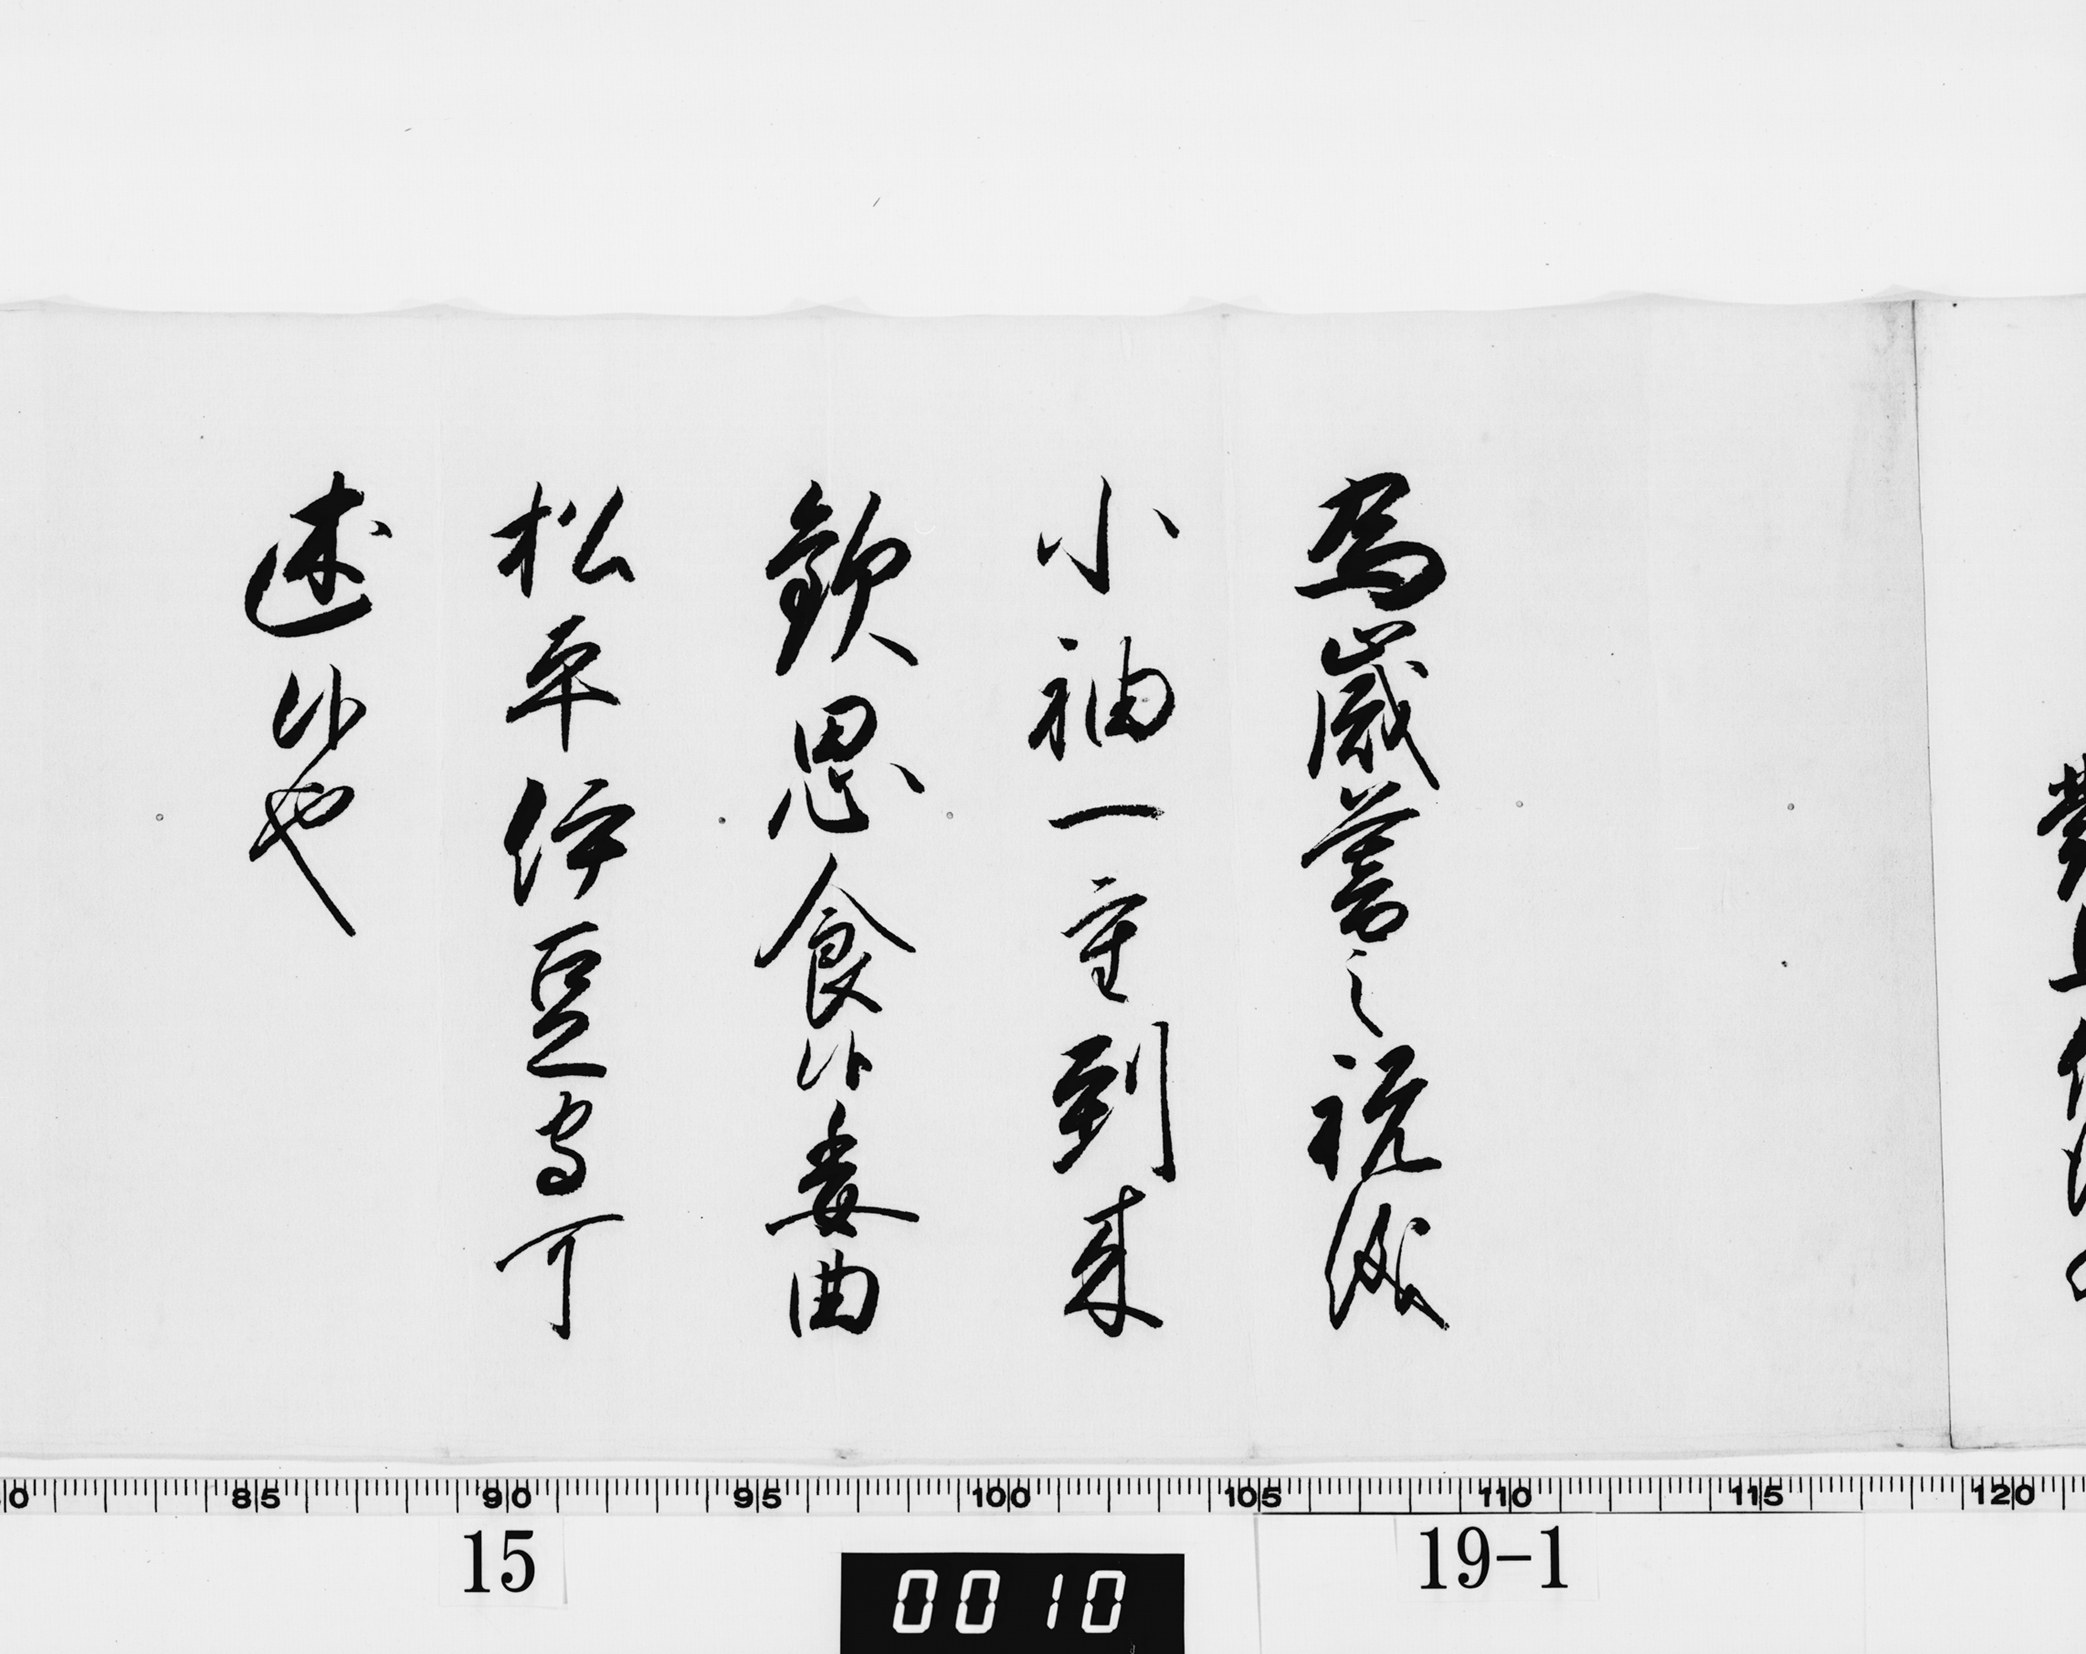 為歳暮之祝儀
小袖一重到来
歓思食候委曲
松平伊豆守可
述候也
85 90 95 100 105 110 115 120
15
19-1
0010